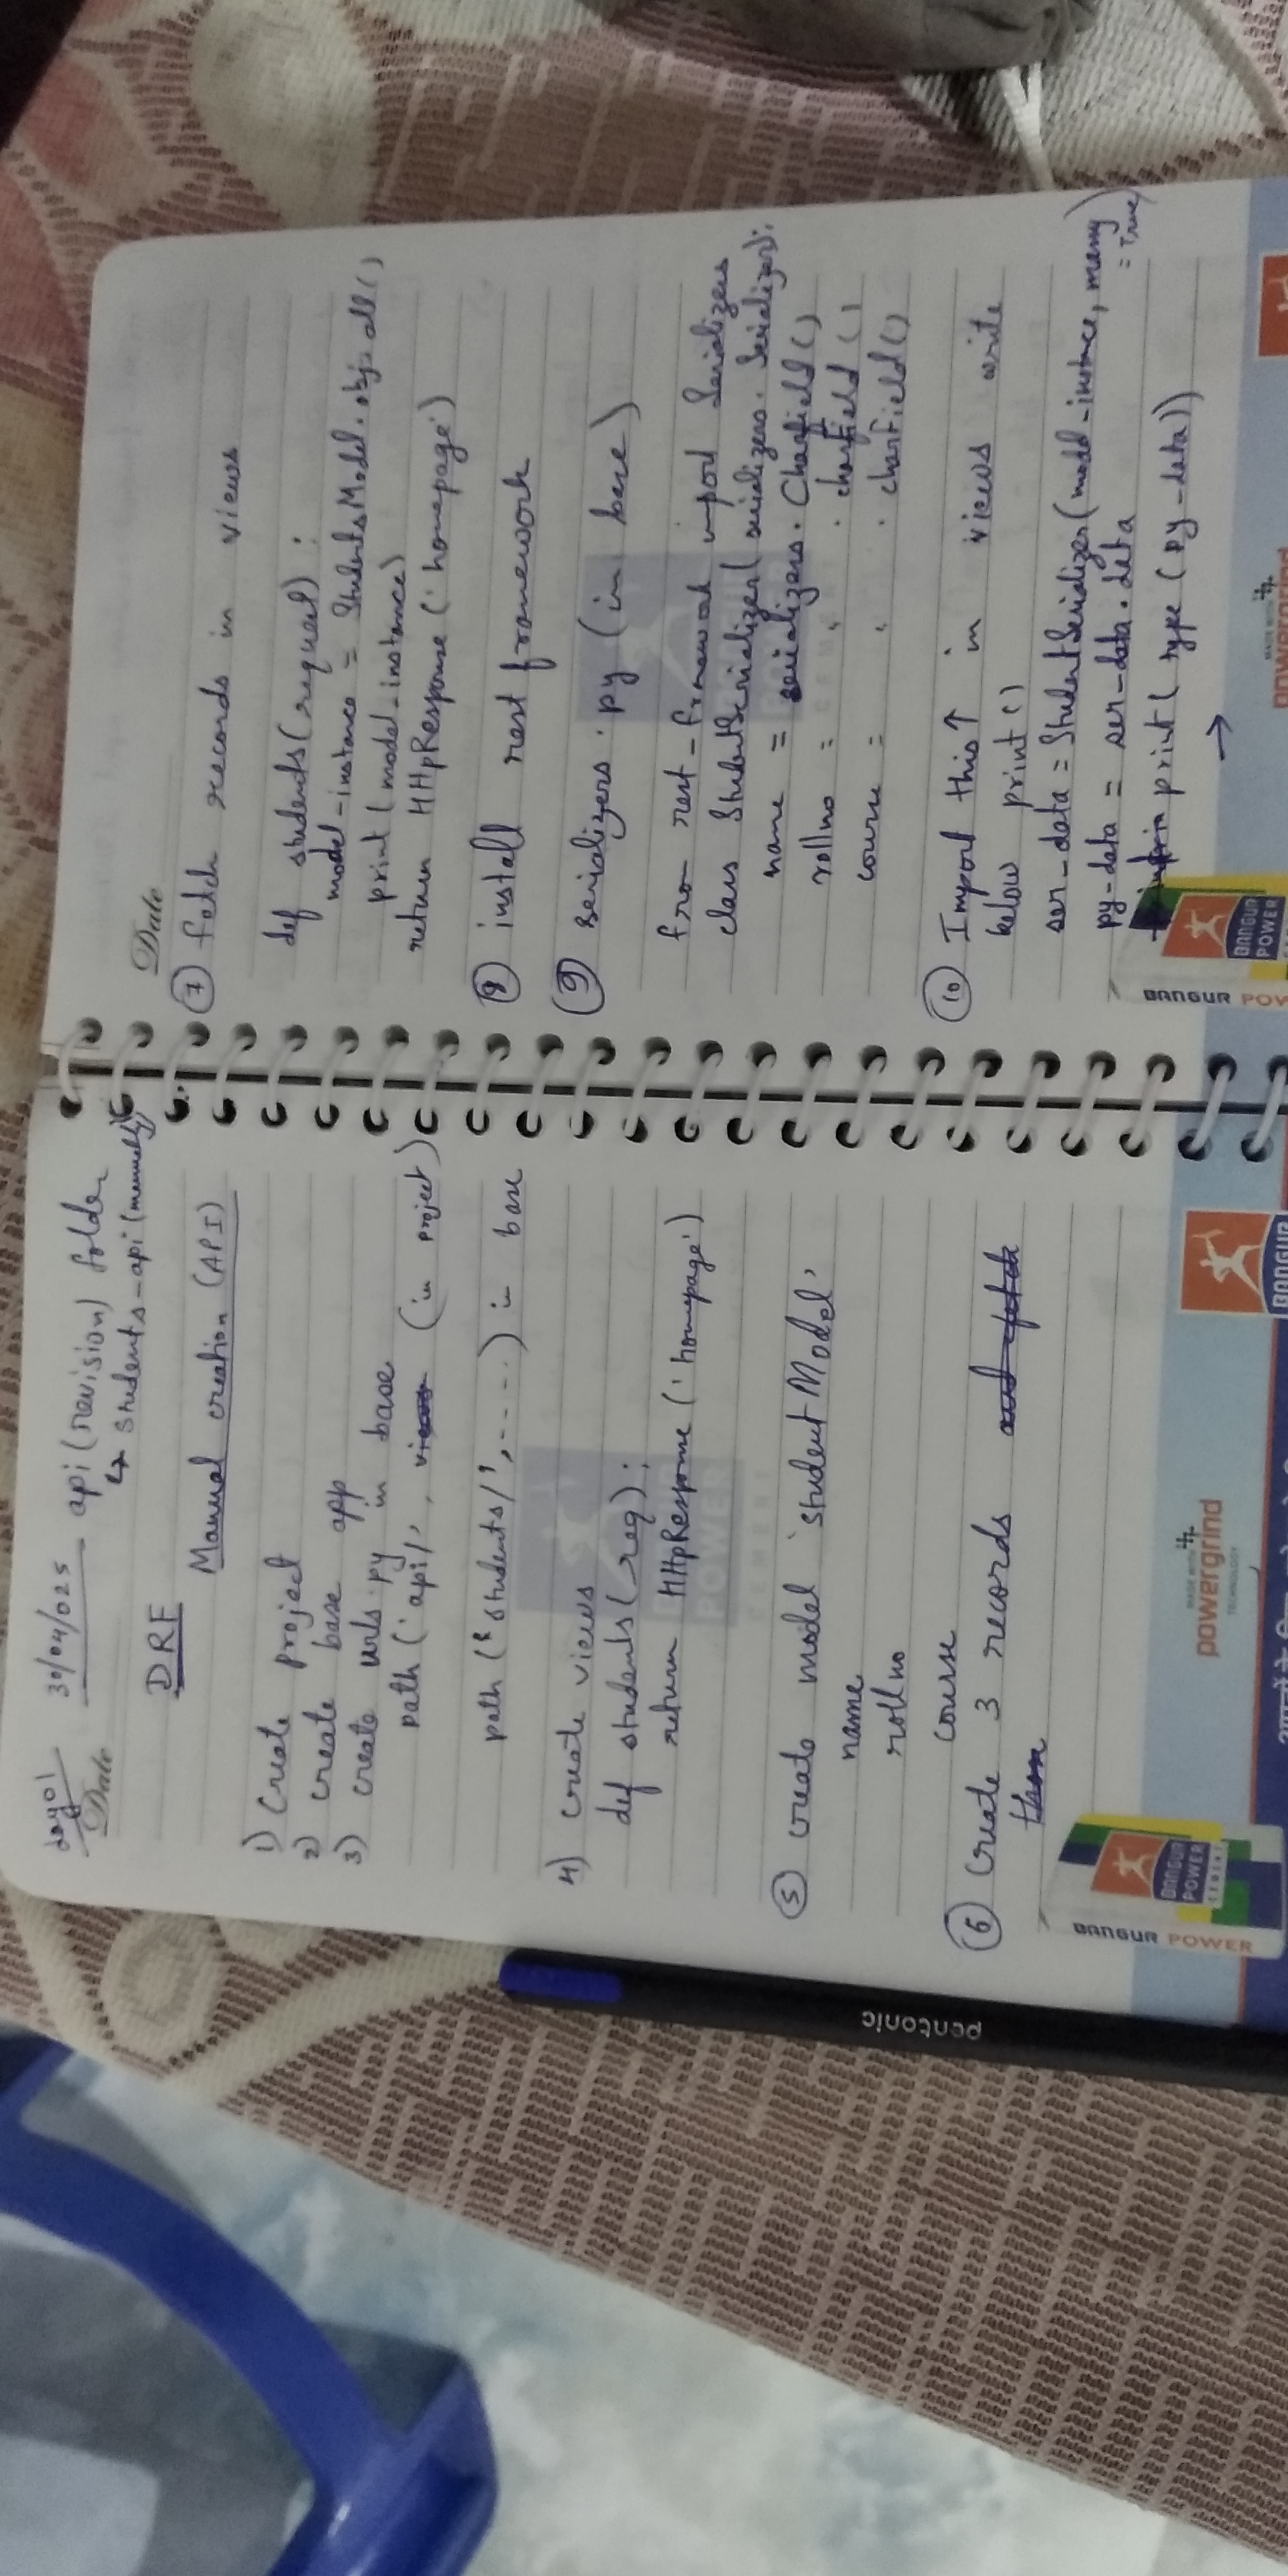 day01
30/04/025
api (revision) folder
Date
↳ students-api (manually)
DRF
Manual creation (API)
1) Create project
2) create base app
3) create urls.py in base
path ('api/', views (in project)
path ('students/', ----.) in base
4) create views
def students(req):
return HttpResponse ('homepage')
5 create model 'studentModel'
name
rollno
course
6 Create 3 records and fetch
them
BANGUR POWER
BANGUR
POWER
CEMENT
MADE WITH
powergrind
TECHNOLOGY
BANGUR
Date
7 fetch records in views
def students(request) :
model-instance = StudentsModel.obj.all()
print (model-instance)
return HttpResponse ('homepage')
8 install rest framework
9 serializers.py (in base)
from rest-framework import Serializers
class StudentSerializer( serializers. Serializer):
name = serializers. Charfield ()
rollno = " . charfield ()
course = " . charField ()
10 Import this↑ in views write
below print ()
ser_data = StudentSerializer(model-instance, many
= True)
py-data = ser-data.data
print ( type (py-data))
→
BANGUR
BANGUR
POWER
MADE WITH
powergrind
pentonic